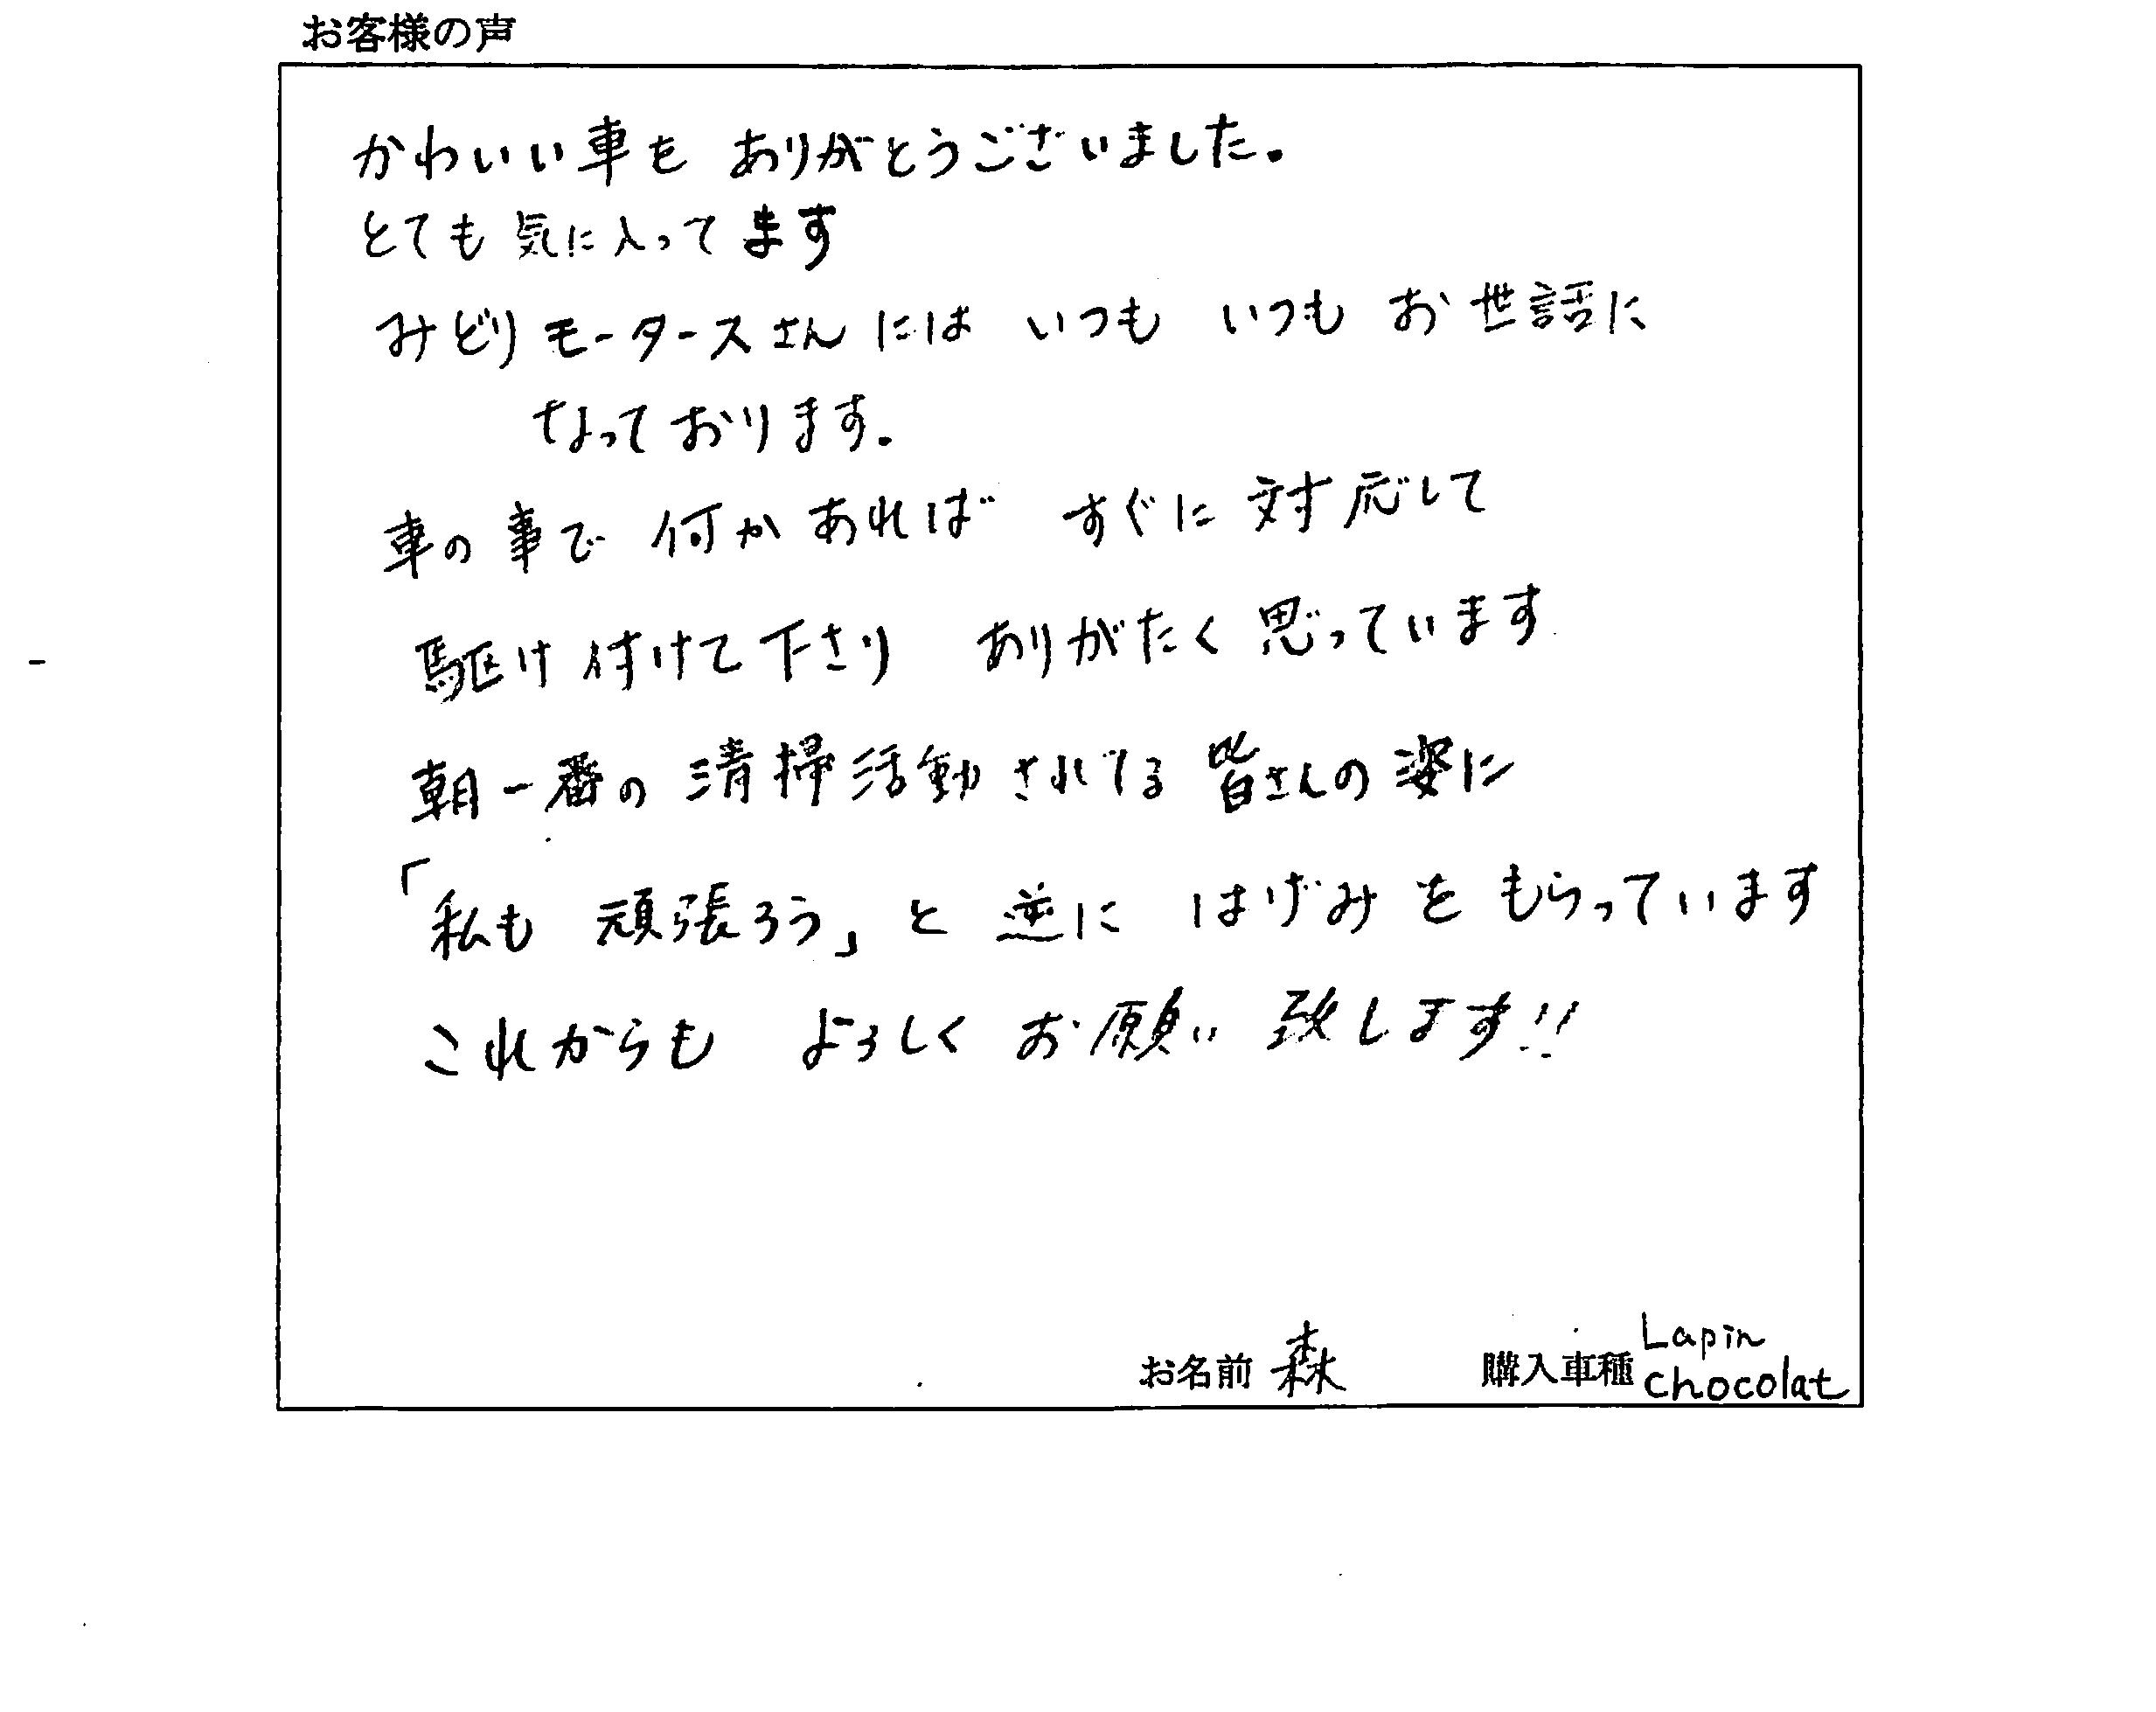 お客様の声
かわいい車を ありがとうございました。
とても 気に入ってます
みどりモータースさんには いつも いつも お世話に
なっております。
車の事で 何かあれば すぐに 対応して
駆け付けて下さり ありがたく思っています
朝一番の清掃活動されてる皆さんの姿に
「私も 頑張ろう」と 逆に はげみを もらっています
これからも よろしく お願い 致します!!
お名前 森 購入車種 Lapin
chocolat